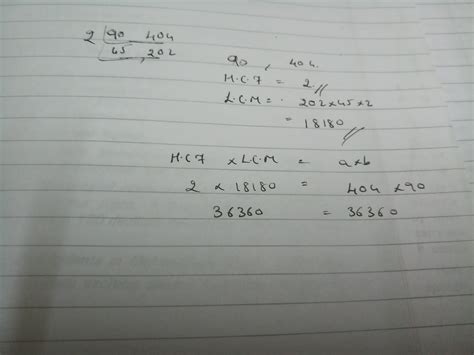 2 | 90 404
45, 202
90, 404.
H.C.F = 2 //
L.C.M = 202 x 45 x 2
= 18180 //
H.C.F x L.C.M = a x b
2 x 18180 = 404 x 90
36360 = 36360